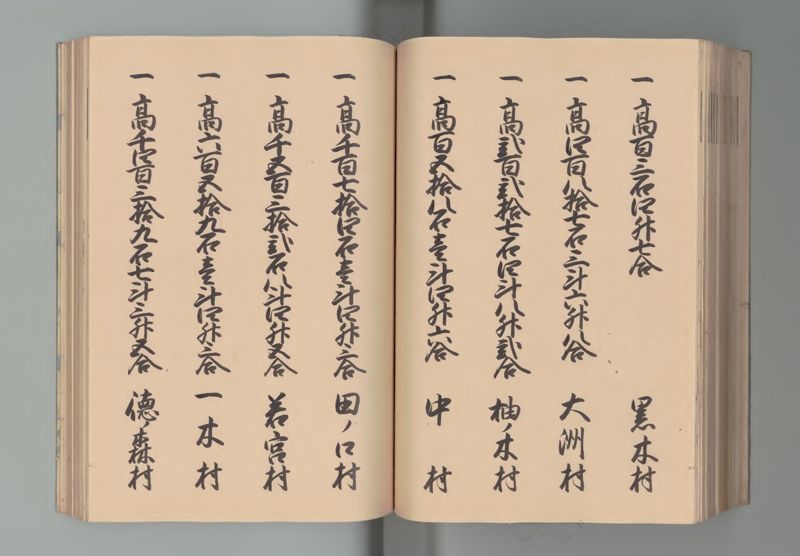 一 高百三石四升七合 黒木村
一 高四百八拾七石三斗六升八合 大洲村
一 高弐百弐拾七石四斗八升弐合 柚ノ木村
一 高百五拾八石壱斗四升六合 中村
一 高千百七拾四石壱斗四升三合 田ノ口村
一 高千五百三拾弐石八斗四升五合 若宮村
一 高六百五拾九石壱斗四升三合 一木村
一 高千四百三拾九石七斗三升五合 徳ノ森村